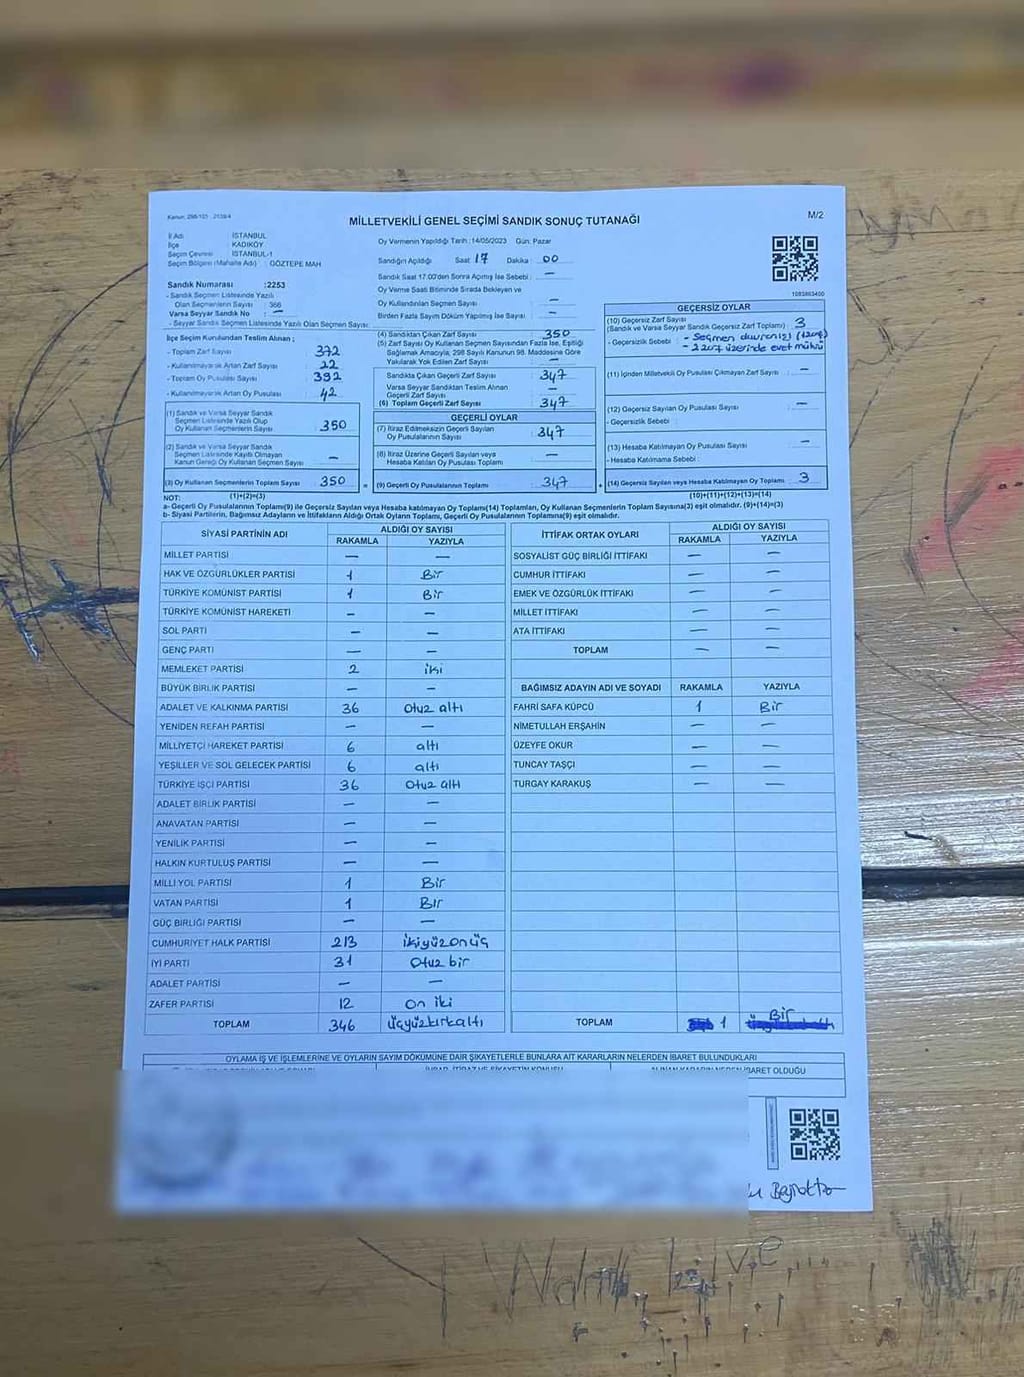 MİLLETVEKİLİ GENEL SEÇİMİ SANDIK SONUÇ TUTANAĞI
M/2
İl Adı İSTANBUL
İlçe KADIKÖY
Seçim Çevresi İSTANBUL-1
Seçim Bölgesi (Mahalle Adı) : GÖZTEPE MAH
Sandık Numarası :2253
- Sandık Seçmen Listesinde Yazılı
Olan Seçmenlerin Sayısı : 366
Varsa Seyyar Sandık No : —
- Seyyar Sandık Seçmen Listesinde Yazılı Olan Seçmen Sayısı:
İlçe Seçim Kurulundan Teslim Alınan ;
- Toplam Zarf Sayısı 372
- Kullanılmayarak Artan Zarf Sayısı 22
- Toplam Oy Pusulası Sayısı 392
- Kullanılmayarak Artan Oy Pusulası 42
(1) Sandık ve Varsa Seyyar Sandık
Seçmen Listesinde Yazılı Olup
Oy Kullanan Seçmenlerin Sayısı 350
(2) Sandık ve Varsa Seyyar Sandık
Seçmen Listesinde Kayıtlı Olmayan
Kanun Gereği Oy Kullanan Seçmen Sayısı —
(3) Oy Kullanan Seçmenlerin Toplam Sayısı 350
(1)+(2)=(3)
Oy Vermenin Yapıldığı Tarih :14/05/2023 Gün: Pazar
Sandığın Açıldığı Saat 17 Dakika : 00
Sandık Saat 17.00'den Sonra Açılmış İse Sebebi : —
Oy Verme Saati Bitiminde Sırada Bekleyen ve
Oy Kullandırılan Seçmen Sayısı —
Birden Fazla Sayım Döküm Yapılmış İse Sayısı : —
(4) Sandıktan Çıkan Zarf Sayısı 350
(5) Zarf Sayısı Oy Kullanan Seçmen Sayısından Fazla İse, Eşitliği
Sağlamak Amacıyla, 298 Sayılı Kanunun 98. Maddesine Göre
Yakılarak Yok Edilen Zarf Sayısı —
Sandıkta Çıkan Geçerli Zarf Sayısı 347
Varsa Seyyar Sandıktan Teslim Alınan
Geçerli Zarf Sayısı —
(6) Toplam Geçerli Zarf Sayısı 347
GEÇERLİ OYLAR
(7) İtiraz Edilmeksizin Geçerli Sayılan
Oy Pusulalarının Sayısı 347
(8) İtiraz Üzerine Geçerli Sayılan veya
Hesaba Katılan Oy Pusulası Toplamı —
= (9) Geçerli Oy Pusulalarının Toplamı 347
1093863400
GEÇERSİZ OYLAR
(10) Geçersiz Zarf Sayısı
(Sandık ve Varsa Seyyar Sandık Geçersiz Zarf Toplamı) 3
- Geçersizlik Sebebi :
- 2207 üzerinde evet mührü
(11) İçinden Milletvekili Oy Pusulası Çıkmayan Zarf Sayısı —
(12) Geçersiz Sayılan Oy Pusulası Sayısı —
- Geçersizlik Sebebi :
(13) Hesaba Katılmayan Oy Pusulası Sayısı —
- Hesaba Katılmama Sebebi :
+ (14) Geçersiz Sayılan veya Hesaba Katılmayan Oy Toplamı 3
(10)+(11)+(12)+(13)=(14)
NOT:
a- Geçerli Oy Pusulalarının Toplamı(9) ile Geçersiz Sayılan veya Hesaba Katılmayan Oy Pusulası Toplamı(14) Toplamları, Oy Kullanan Seçmenlerin Toplam Sayısına(3) eşit olmalıdır. (9)+(14)=(3)
b- Siyasi Partilerin, Bağımsız Adayların ve İttifakların Aldığı Ortak Oyların Toplamı, Geçerli Oy Pusulalarının Toplamına(9) eşit olmalıdır.
SİYASİ PARTİNİN ADI ALDIĞI OY SAYISI
RAKAMLA YAZIYLA
MİLLET PARTİSİ — —
HAK VE ÖZGÜRLÜKLER PARTİSİ 1 Bir
TÜRKİYE KOMÜNİST PARTİSİ 1 Bir
TÜRKİYE KOMÜNİST HAREKETİ — —
SOL PARTİ — —
GENÇ PARTİ — —
MEMLEKET PARTİSİ 2 iki
BÜYÜK BİRLİK PARTİSİ — —
ADALET VE KALKINMA PARTİSİ 36 otuz altı
YENİDEN REFAH PARTİSİ — —
MİLLİYETÇİ HAREKET PARTİSİ 6 altı
YEŞİLLER VE SOL GELECEK PARTİSİ 6 altı
TÜRKİYE İŞÇİ PARTİSİ 36 Otuz altı
ADALET BİRLİK PARTİSİ — —
ANAVATAN PARTİSİ — —
YENİLİK PARTİSİ — —
HALKIN KURTULUŞ PARTİSİ — —
MİLLİ YOL PARTİSİ 1 Bir
VATAN PARTİSİ 1 Bir
GÜÇ BİRLİĞİ PARTİSİ — —
CUMHURİYET HALK PARTİSİ 213 ikiyüzonüç
İYİ PARTİ 31 Otuz bir
ADALET PARTİSİ — —
ZAFER PARTİSİ 12 on iki
TOPLAM 346 üçyüzkırkaltı
İTTİFAK ORTAK OYLARI ALDIĞI OY SAYISI
RAKAMLA YAZIYLA
SOSYALİST GÜÇ BİRLİĞİ İTTİFAKI — —
CUMHUR İTTİFAKI — —
EMEK VE ÖZGÜRLÜK İTTİFAKI — —
MİLLET İTTİFAKI — —
ATA İTTİFAKI — —
TOPLAM — —
BAĞIMSIZ ADAYIN ADI VE SOYADI RAKAMLA YAZIYLA
FAHRİ SAFA KÜPCÜ 1 Bir
NİMETULLAH ERŞAHİN — —
ÜZEYFE OKUR — —
TUNCAY TAŞÇI — —
TURGAY KARAKUŞ — —
TOPLAM 1 Bir
OYLAMA İŞ VE İŞLEMLERİNE VE OYLARIN SAYIM DÖKÜMÜNE DAİR ŞİKAYETLERLE BUNLARA AİT KARARLARIN NELERDEN İBARET BULUNDUKLARI